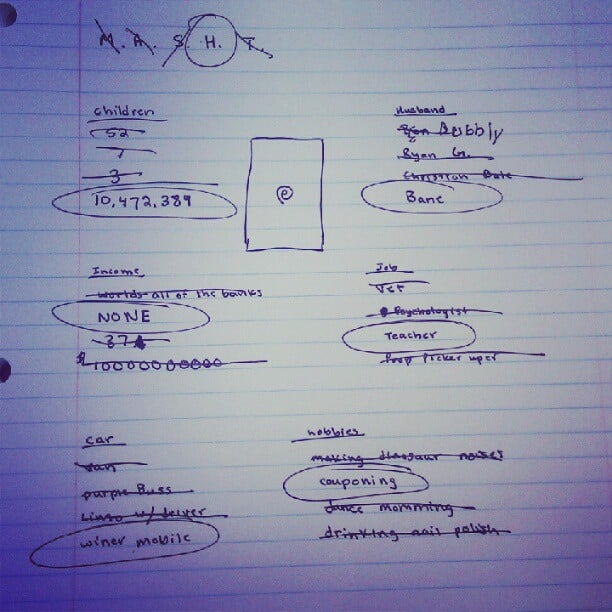 M. A. S. H. T.
children
52
7
3
10,472,389
Husband
Bubbly
Ryan G.
Christian Bale
Bane
e
Income
worlds all of the banks
NONE
37¢
$100000000000
Job
Vet
Psychologist
Teacher
Poop Picker uper
car
van
purple Buss
Limo w/ driver
winer mobile
hobbies
making dinosaur noises
couponing
dance momming
drinking nail polish